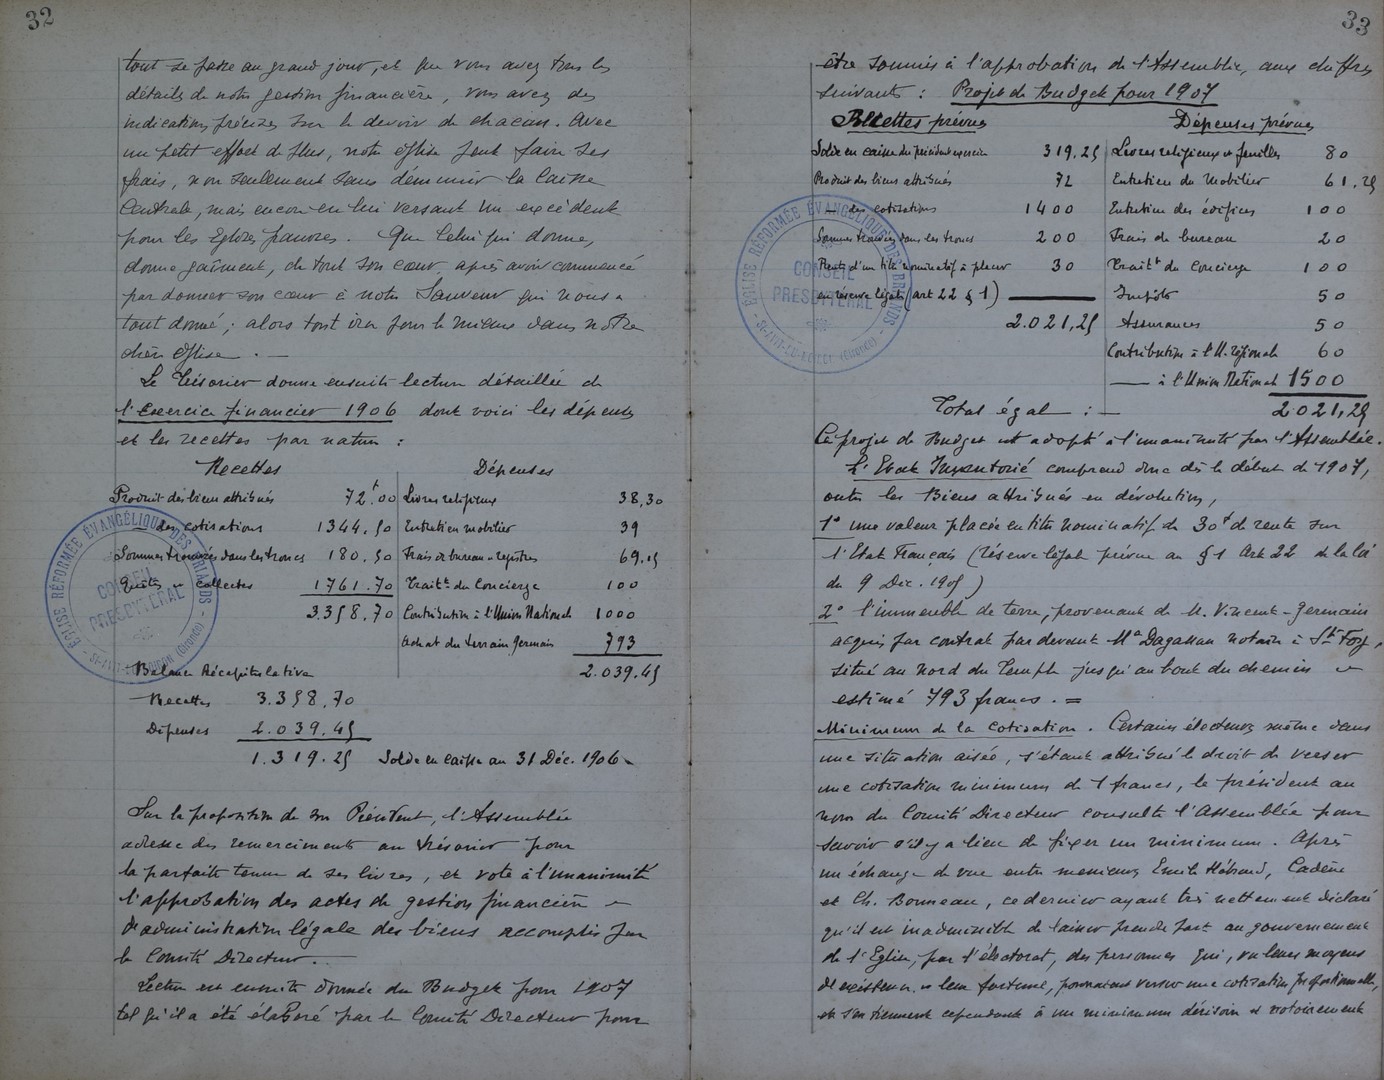 32
tout se passe au grand jour, et que vous avez tous les
détails de notre gestion financière, vous avez des
indications précises sur le devoir de chacun. Avec
un petit effort de plus, notre église peut faire ses
frais, non seulement sans démunir la Caisse
Centrale, mais encore en lui versant un excédent
pour les Eglises pauvres. Que Celui qui donne,
donne gaîment, de tout son cœur, après avoir commencé
par donner son cœur à notre Sauveur qui nous a
tout donné; alors tout ira pour le mieux dans notre
chère église. —
Le Trésorier donne ensuite lecture détaillée de
l'Exercice financier 1906 dont voici les dépenses
et les recettes par nature :
Recettes
Produit des biens attribués 72f.00
— des cotisations 1344.50
Sommes trouvées dans les troncs 180.50
Quêtes et collectes 1761.70
3.358.70
Dépenses
Livres religieux 38,30
Entretien mobilier 39
Frais de bureau et registres 69.15
Trait.t du Concierge 100
Contribution à l'Union Nationale 1000
Achat du terrain Germain 793
2.039.45
Balance Récapitulative
Recettes 3.358,70
Dépenses 2.039.45
1.319.25 Solde en caisse au 31 Déc. 1906
ÉGLISE RÉFORMÉE ÉVANGÉLIQUE DES BRIANDS
CONSEIL
PRESBYTÉRAL
Sur la proposition de son Président, l'Assemblée
adresse des remerciments au trésorier pour
la parfaite tenue de ses livres, et vote à l'unanimité
l'approbation des actes de gestion financière et
d'administration légale des biens accomplis par
le Comité Directeur. —
Lecture est ensuite donnée du Budget pour 1907
tel qu'il a été élaboré par le Comité Directeur pour
33
être soumis à l'approbation de l'Assemblée, aux chiffres
suivants : Projet de Budget pour 1907
Recettes prévues
Solde en caisse du précédent exercice 319.25
Produit des biens attribués 72
— des cotisations 1400
Sommes trouvées dans les troncs 200
Rente d'un titre nominatif à placer 30
en réserve légale (art 22 § 1)
2.021,25
Dépenses prévues
Livres religieux et feuilles 80
Entretien du Mobilier 61,25
Entretien des édifices 100
Frais de bureau 20
Trait.t du Concierge 100
Impôts 50
Assurances 50
Contribution à l'U. régionale 60
— à l'Union Nationale 1500
Total égal : — 2.021,25
ÉGLISE RÉFORMÉE ÉVANGÉLIQUE DES BRIANDS
CONSEIL
PRESBYTÉRAL
Ce projet de Budget est adopté à l'unanimité par l'Assemblée.
L'Etat Inventorié comprend donc dès le début de 1907,
outre les Biens attribués en dévolution,
1° une valeur placée en titre nominatif de 30f de rente sur
l'Etat Français (réserve légale prévue au § 1 Art 22 de la loi
du 9 Déc. 1905)
2° l'immeuble de terre, provenant de M. Vincent-Germain
acquis par contrat par devant Me Dagassan notaire à Ste Foy,
situé au nord du Temple jusqu'au bout du chemin et
estimé 793 francs. =
Minimum de la cotisation. Certains électeurs même dans
une situation aisée, s'étant attribué le droit de verser
une cotisation minimum de 1 franc, le président au
nom du Comité Directeur consulte l'Assemblée pour
savoir s'il y a lieu de fixer un minimum. Après
un échange de vue entre messieurs Emile Hébrard, Cadène
et Ch. Bonneau, ce dernier ayant très nettement déclaré
qu'il est inadmissible de laisser prendre part au gouvernement
de l'Eglise, par l'électorat, des personnes qui, vu leurs moyens
d'existence et leur fortune, pourraient verser une cotisation proportionnelle,
et s'en tiennent cependant à un minimum dérisoire et notoirement